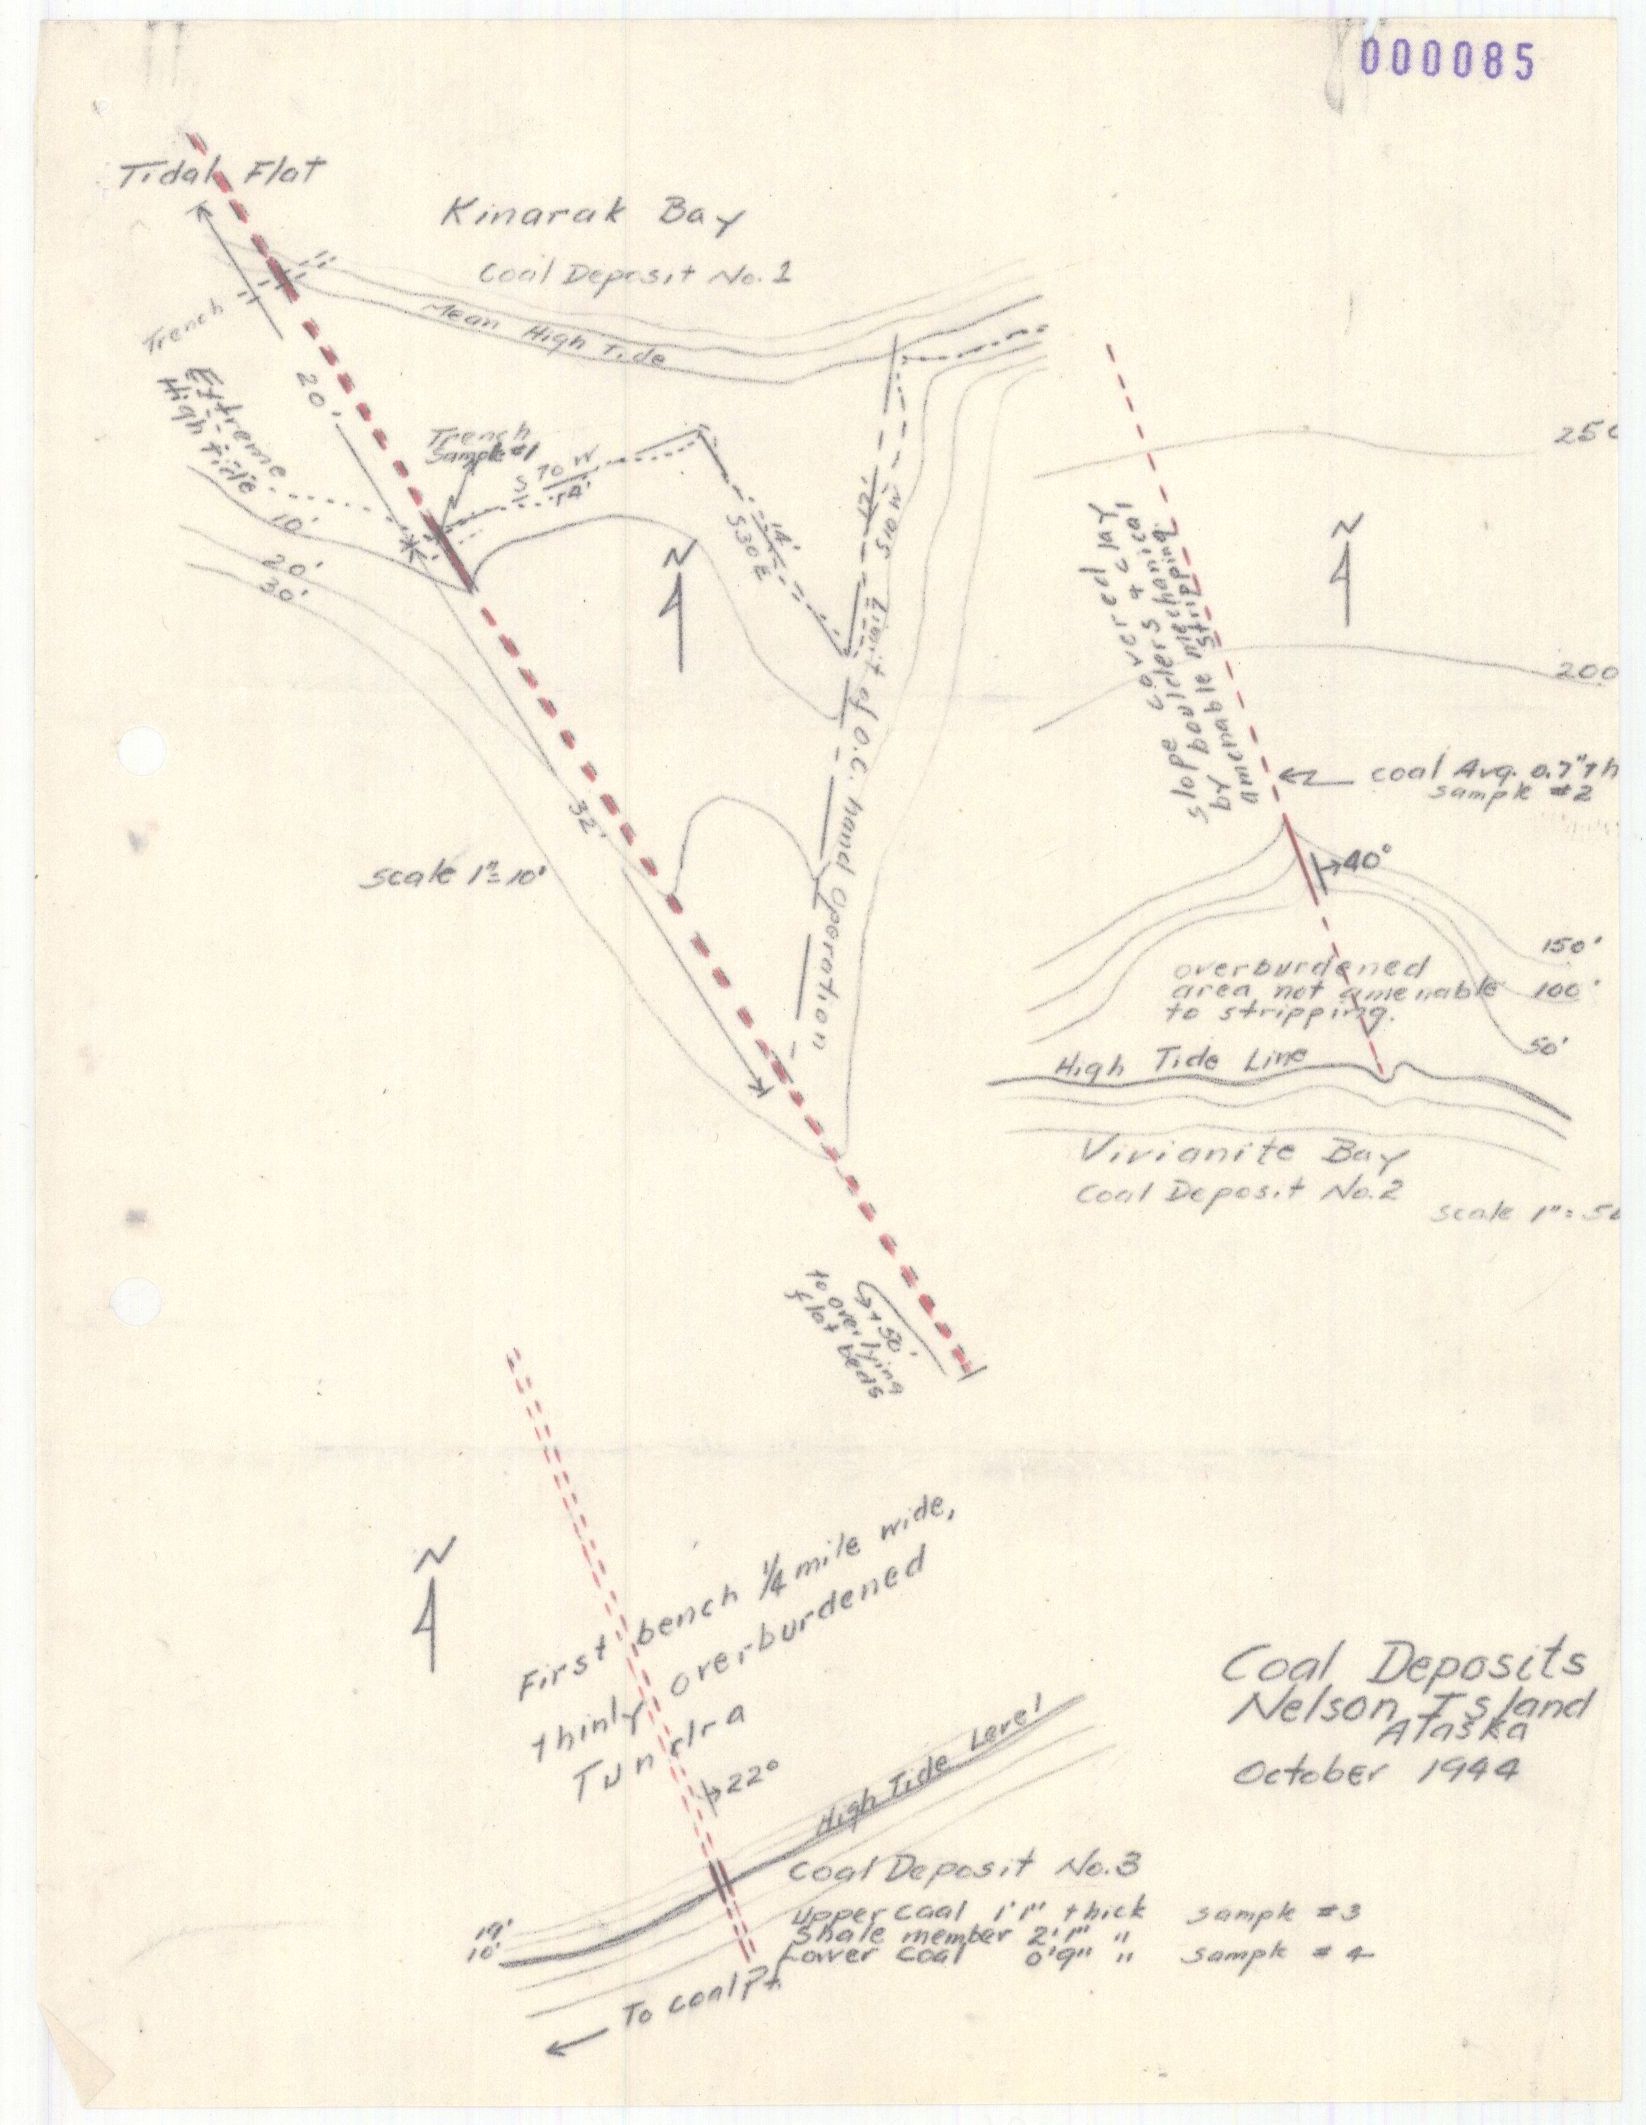 000085
Tidal Flat
Kinarak Bay
Coal Deposit No. 1
Mean High Tide
Trench
20'
Extreme
High tide
Trench
Sample #1
S 70 W
14'
10'
20'
30'
14'
S 30 E
12'
S 10 W
Limit of O.C. hand operation
N
32'
scale 1"=10'
+50'
to overlying
flat beds
250
N
slope covered by
boulders + clay
amenable mechanical
stripping
200
coal Avg. 0.7" th
sample #2
40°
150'
overburdened
area not amenable
to stripping.
100'
50'
High Tide Line
Vivianite Bay
Coal Deposit No. 2
scale 1" = 5
N
First bench 1/4 mile wide,
thinly overburdened
Tundra
22°
High Tide Level
Coal Deposits
Nelson Island
Alaska
October 1944
Coal Deposit No. 3
Upper coal 1'1" thick sample #3
Shale member 2'1" "
Lower coal 0'9" " sample #4
19'
10'
To coal Pt.